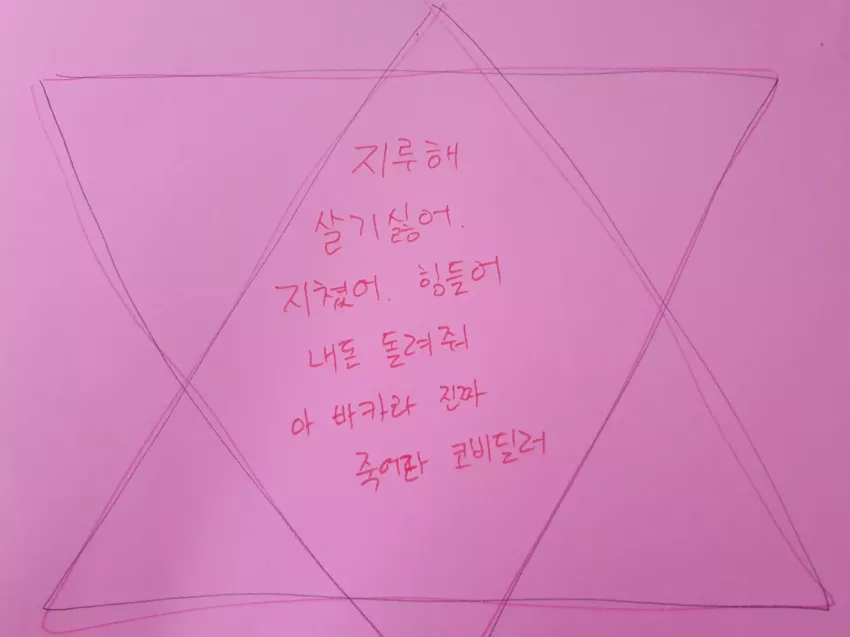 지루해
살기싫어.
지쳤어. 힘들어
내돈 돌려줘
아 바카라 진짜
죽어라 코비딜러